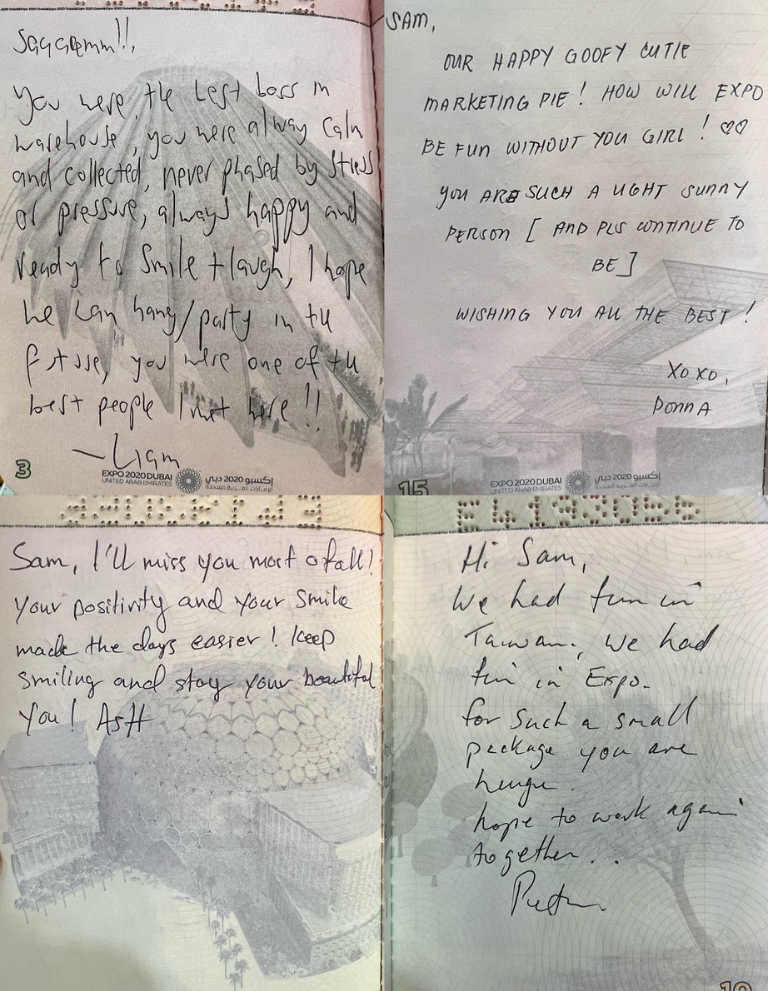 Saaaaemm!!,
You were the best boss in
warehouse, you were alway calm
and collected, never phased by stress
or pressure, always happy and
ready to smile + laugh, I hope
we can hang/party in the
future, you were one of the
best people I met here!!
—Liam
3
EXPO 2020 DUBAI
UNITED ARAB EMIRATES
إكسبو 2020 دبي
الإمارات العربية المتحدة
SAM,
OUR HAPPY GOOFY CUTIE
MARKETING PIE! HOW WILL EXPO
BE FUN WITHOUT YOU GIRL! ♡♡
YOU ARE SUCH A LIGHT SUNNY
PERSON [AND PLS CONTINUE TO
BE]
WISHING YOU ALL THE BEST!
XOXO,
DONNA
15
EXPO 2020 DUBAI
UNITED ARAB EMIRATES
إكسبو 2020 دبي
الإمارات العربية المتحدة
Sam, I'll miss you most of all!
Your positivity and your smile
made the days easier! Keep
smiling and stay your beautiful
you! AsH
Hi Sam,
We had fun in
Taiwan., we had
fun in Expo.
for such a small
package you are
hunge.
hope to work again
together..
10